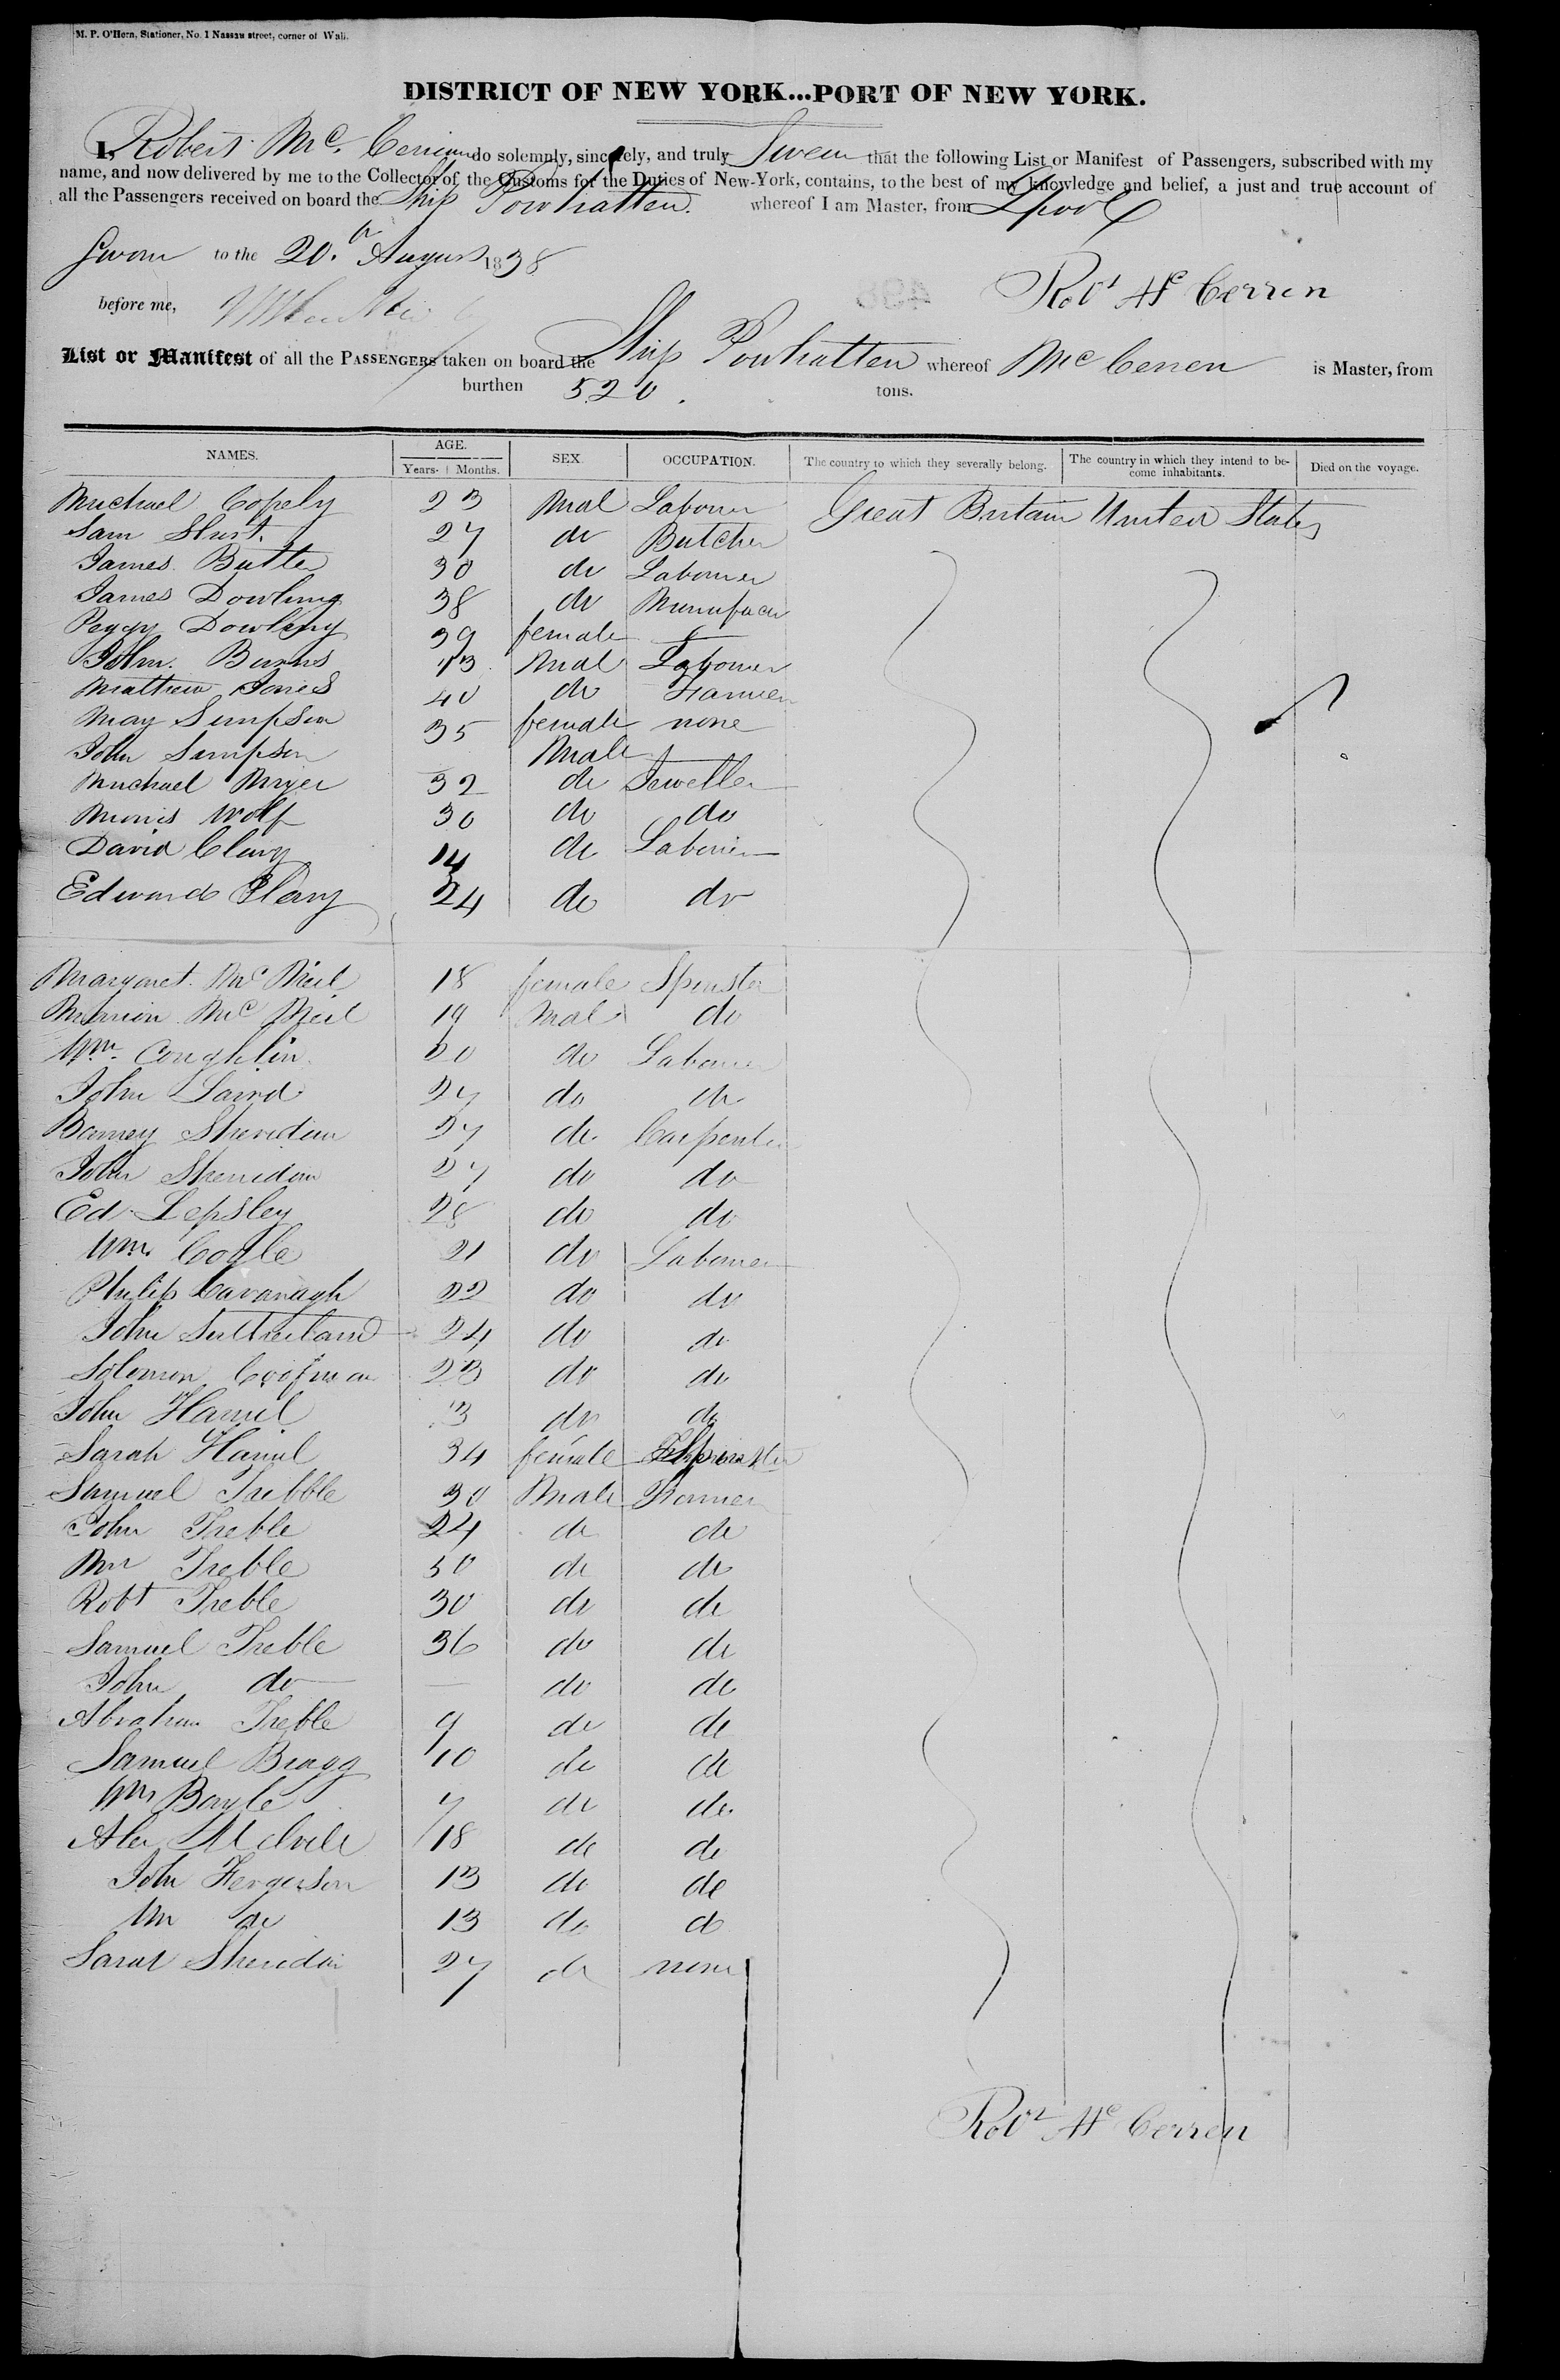 M. P. O'Hern, Stationer, No. 1 Nassau street, corner of Wall.
DISTRICT OF NEW YORK...PORT OF NEW YORK.
I, Robert Mc. Cerren do solemnly, sincerely, and truly Swear that the following List or Manifest of Passengers, subscribed with my
name, and now delivered by me to the Collector of the Customs for the Duties of New-York, contains, to the best of my knowledge and belief, a just and true account of
all the Passengers received on board the Ship Powhatten. whereof I am Master, from Lpool
Sworn to the 20th August 1838
before me,
Robt Mc Cerren
List or Manifest of all the PASSENGERS taken on board the Ship Powhatten whereof Mc Cerren is Master, from
burthen 520. tons.
NAMES. AGE. SEX. OCCUPATION. The country to which they severally belong. The country in which they intend to become inhabitants. Died on the voyage.
Years. Months.
Michael Copely 23 Mal Labourer Great Britain United States
Sam 27 do Butcher
James Butler 30 do Labourer
James Dowling 38 do
Peggy Dowling 39 female
John. Burns 13 Mal Labourer
Mathew Jones 40 do Farmer
May Simpson 35 female none
John Simpson Male
Michael Myer 32 do Jeweller
Morris Wolf 30 do do
David Clary 14 do Labourer
Edward Clary 24 do do
Margaret Mc Neil 18 female Spinster
Mc Neil 19 Mal do
Wm. Coughlin 20 do Labourer
John Laird 27 do do
Barney Sheridan 27 do Carpenter
John Sheridan 27 do do
Ed. Lepsley 28 do do
Wm. Cogle 21 do Labourer
Philip Cavanagh 22 do do
John Sutherland 24 do do
Solomon 23 do do
John Hamil 3 do do
Sarah Hamil 34 female Spinster
Samuel Trebble 30 Male Farmer
John Treble 24 do do
Wm Treble 30 do do
Robt Treble 30 do do
Samuel Treble 36 do do
John do — do do
Abraham Treble 9 do do
Samuel Bragg 10 do do
Wm Boyle 7 do do
Alex Melvile 18 do do
John Fergerson 13 do do
Wm do 13 do do
Sarat Sheridan 27 do none
Robt Mc Cerren